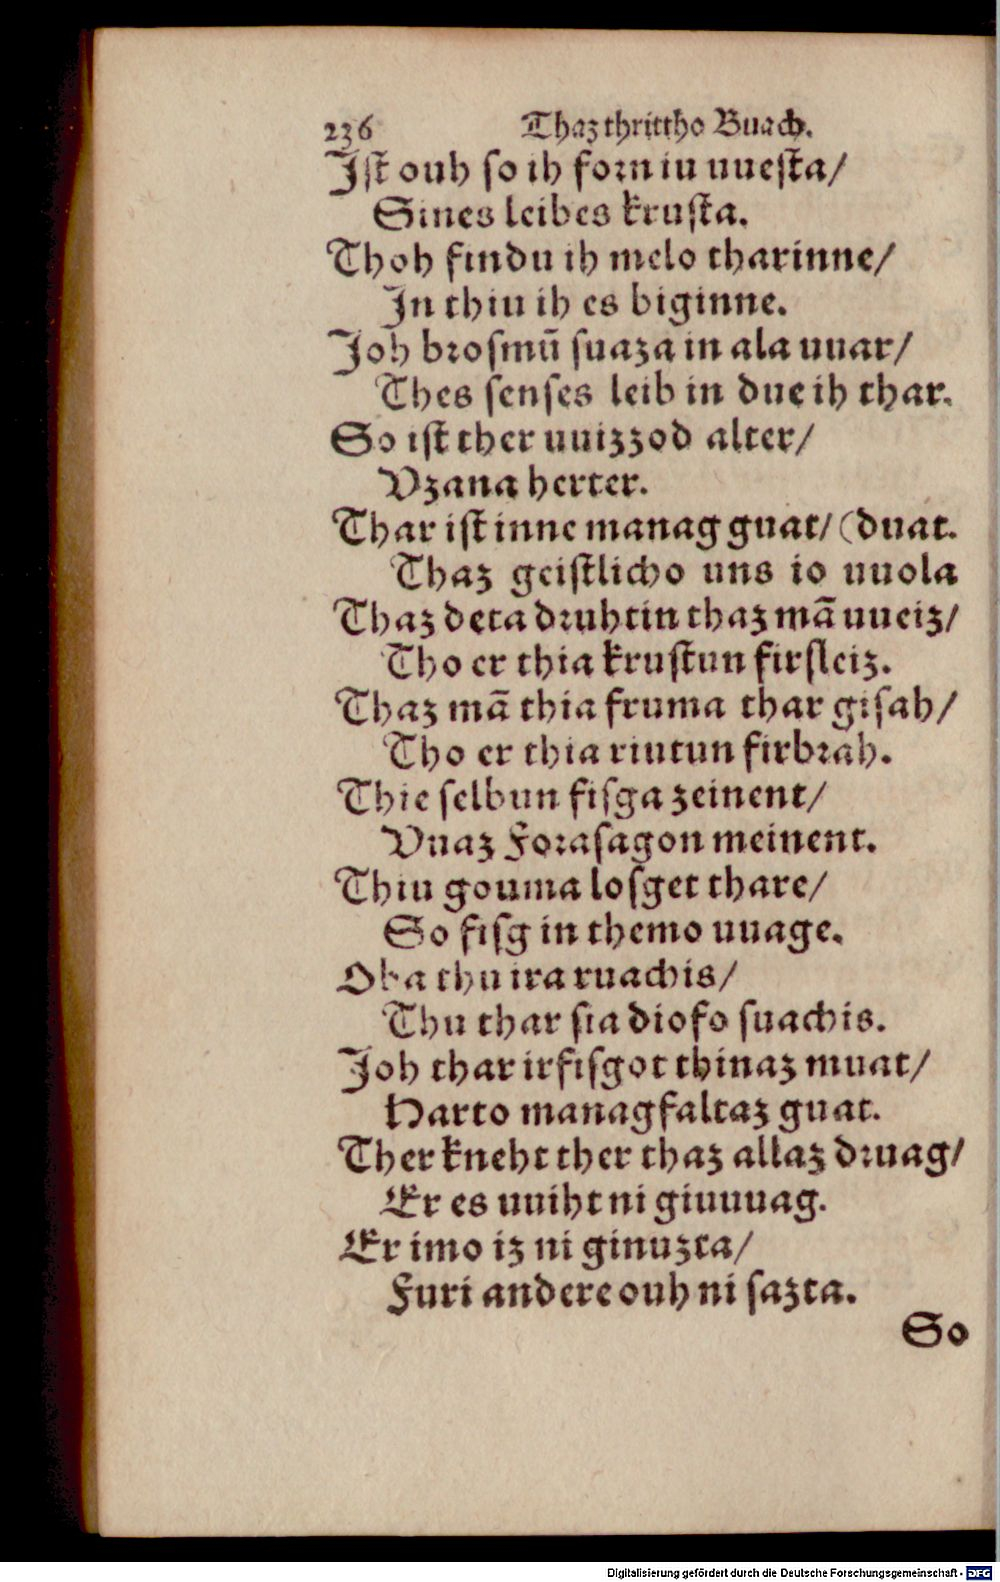 236 Thaz thrittho Buach.
Ist ouh so ih forn iu uuesta/
Sines leibes krusta.
Thoh findu ih melo tharinne/
In thiu ih es biginne.
Joh brosmū suaza in ala uuar/
Thes senses leib in due ih thar.
So ist ther uuizzod alter/
Vzana herter.
Thar ist inne manag guat/ (duat.
Thaz geistlicho uns io uuola
Thaz deta druhtin thaz mā uueiz/
Tho er thia krustun firsleiz.
Thaz mā thia fruma thar gisah/
Tho er thia rintun firbrah.
Thie selbun fisga zeinent/
Vuaz Forasagon meinent.
Thiu gouma losget thare/
So fisg in themo uuage.
Oba thu ira ruachis/
Thu thar sia diofo suachis.
Joh thar irfisgot thinaz muat/
Harto managfaltaz guat.
Ther kneht ther thaz allaz druag/
Er es uuiht ni giuuuag.
Er imo iz ni ginuzta/
Furi andere ouh ni sazta.
So
Digitalisierung gefördert durch die Deutsche Forschungsgemeinschaft - DFG